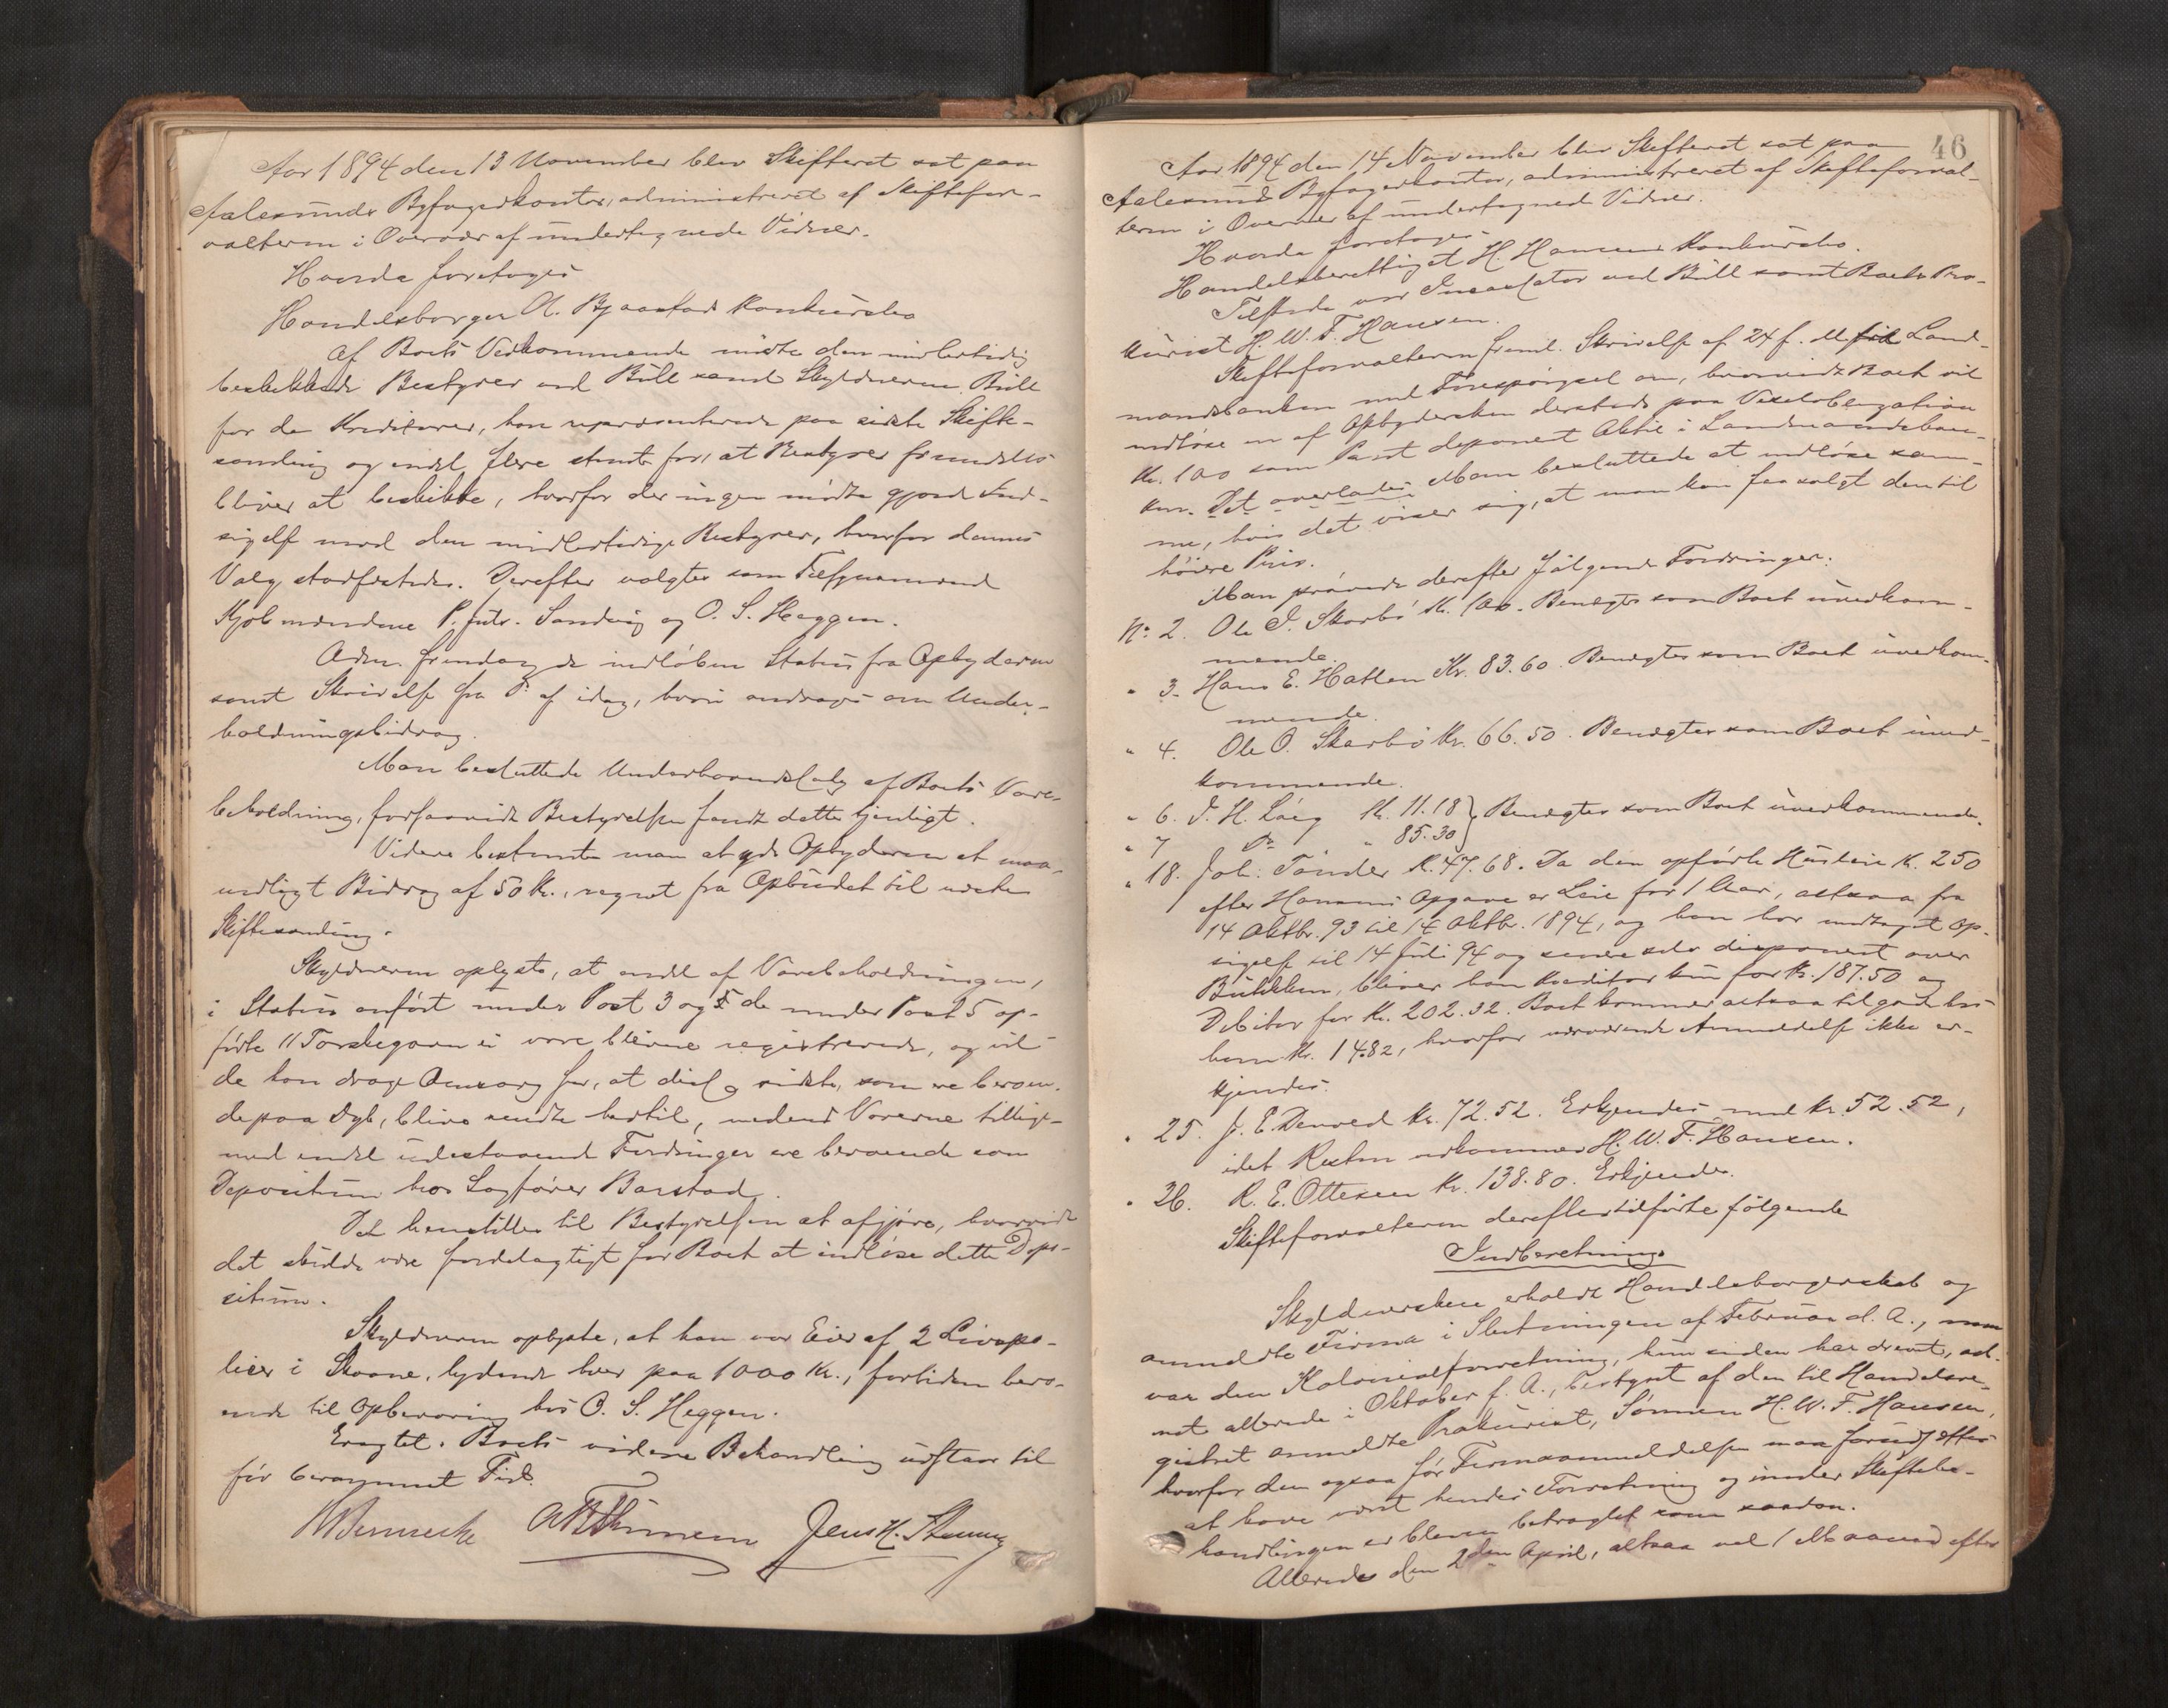 Aar 1894 den 13 November blev Skifteret sat paa
Aalesunds Byfogedkontor, administreret af Skiftefor-
valteren i Overvær af undertegnede Vidner.
Hvorda foretoges
Handelsborger A. Bjaastads Konkursbo
Af Boets Vedkommende mødte den midlertidig
beskikkede Bestyrer ved Bull samt Skyldneren. Bull
for de Kreditorer, han repræsenterede paa sidste Skifte-
samling og endel flere stemte for, at Bestyrer fremdeles
bliver at beskikke, hvorfor der ingen mødte gjorde Ind-
sigelse mod den midlertidige Bestyrer, hvorfor dennes
Valg stadfæstedes. Derefter valgtes som Tilsynsmænd
Kjøbmændene P. Julr. Sandvig og O. S. Heggen.
Adm. fremlagde indløben Status fra Opbyderen
samt Skrivelse fra S. af idag, hvori andrages om Under-
holdningsbidrag.
Man besluttede Underhaandssalg af Boets Vare-
beholdning, forsaavidt Bestyrelsen fandt dette tjenligt.
Videre bestemte man at yde Opbyderen et maa-
nedligt Bidrag af 50 Kr., regnet fra Opbudet til næste
Skiftesamling.
Skyldneren oplyste, at endel af Varebeholdningen,
i Status anført under Post 3 og 5 de under Post 5 op-
førte 11 Torskegarn ei vare blevne registrerede, og vil-
de han drage Omsorg for, at disse sidste, som ere beroen-
de paa Dyb, blive sendte hertil, medens Varerne tillige-
med endel udestaaende Fordringer ere beroende som
Depositum hos Sagfører Barstad.
Det henstilles til Bestyrelsen at afgjøre, hvorvidt
det skulde være fordelagtigt for Boet at indløse dette Depo-
situm.
Skyldneren oplyste, at han var Eier af 2 Livspo-
licer i Skaane, lydende hver paa 1000 Kr., fortiden bero-
ende til Opbevaring hos O. S. Heggen.
Eragtet. Boets videre Behandling udstaar til
før berammet Tid.
Jens K.
46
Aar 1894 den 14 November blev Skifteret sat paa
Aalesunds Byfogedkontor, administreret af Skifteforval-
teren i Overvær af undertegnede Vidner.
Hvorda foretoges
Handelsberettiget H. Hansens Konkursbo.
Tilstede var Incassator ved Bull samt Boets Pro-
kurist H. W. F. Hansen.
Skifteforvalteren freml. Skrivelse af 24 f. M. fra Land-
mandsbanken med Forespørgsel om, hvorvidt Boet vil
indløse en af Opbydersken dersteds paa Vexelobligation
Kr. 100 som Pant deponert Aktie i Landmandsban-
ken. Det overlades Man besluttede at indløse sam-
me, hvis det viser sig, at man kan faa solgt den til
høiere Pris.
Man prøvede derefter følgende Fordringer:
No 2. Ole I. Skarbø Kr. 100. Benægtes som Boet uvedkom-
mende.
" 3. Hans E. Hatlen Kr. 83.60. Benægtes som Boet uvedkom-
mende.
" 4. Ole O. Skarbø Kr. 66.50. Benægtes som Boet uved-
kommende.
" 6. I. H. Løeg Kr. 11.18 } Benægtes som Boet uvedkommende.
" 7 Do " 85.30
" 18. Joh. Tønder K. 47.68. Da den opførte Husleie K. 250
efter Hansens Opgave er Leie for 1 Aar, altsaa fra
14 Oktbr. 93 til 14 Oktbr. 1894, og han har modtaget Op-
sigelse til 14 Juli 94 og senere selv disponert over
Butikken, bliver han Kreditor kun for Kr. 187.50 og
Debitor for Kr. 202.32. Boet kommer altsaa tilgode hos
ham Kr. 14.82, hvorfor nærværende Anmeldelse ikke er-
kjendes.
" 25. J. E. Devold Kr. 72.52. Erkjendes med Kr. 52.52,
idet Resten vedkommer H. W. F. Hansen.
" 26. R. E. Ottesen Kr. 138.80. Erkjendes.
Skifteforvalteren derefter tilførte følgende
Indberetning
Skyldnersken erholdt Handelsborgerskab og
anmeldte Firma i Slutningen af Februar d. A., men
var den Kolonialforretning, hun siden har drevet, aab-
net allerede i Oktober f. A., bestyret af den til Handelsre-
gistret anmeldte Prokurist, Sønnen H. W. F. Hansen,
hvorfor den ogsaa før Firmaanmeldelsen maa forudsættes
at have været hendes Forretning og under Skiftebe-
handlingen er bleven betragtet som saadan.
Allerede den 2den April, altsaa vel 1 Maaned efter